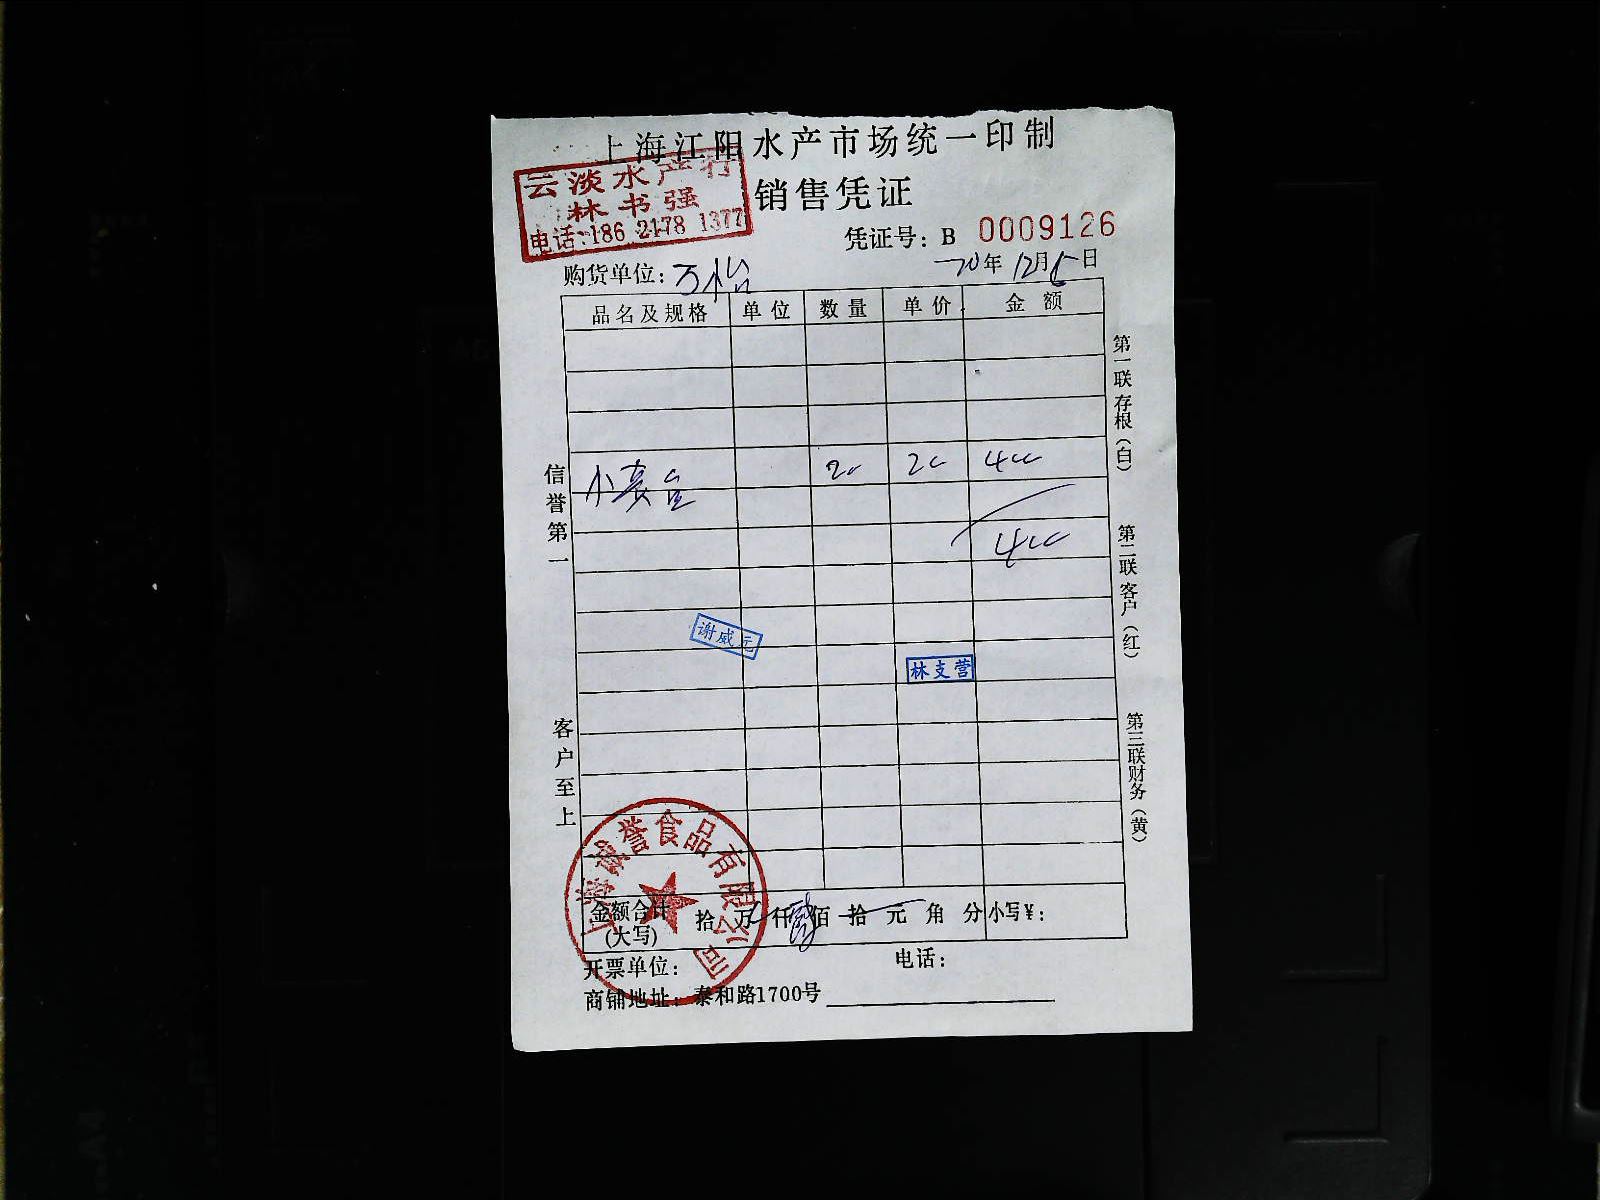 上海江阳水产市场统一印制
销售凭证
云淡水产行
林书强
电话:186 2178 1377
凭证号: B 0009126
购货单位: 万怡
20年 12月 日
品名及规格 单位 数量 单价 金额
20 20 400
400
谢威元
林支营
信誉第一
客户至上
第一联存根(白)
第二联客户(红)
第三联财务(黄)
上海诚誉食品有限公司
金额合计(大写) 拾 万 仟 肆 佰 拾 元 角 分 小写¥:
开票单位: 电话:
商铺地址: 泰和路1700号